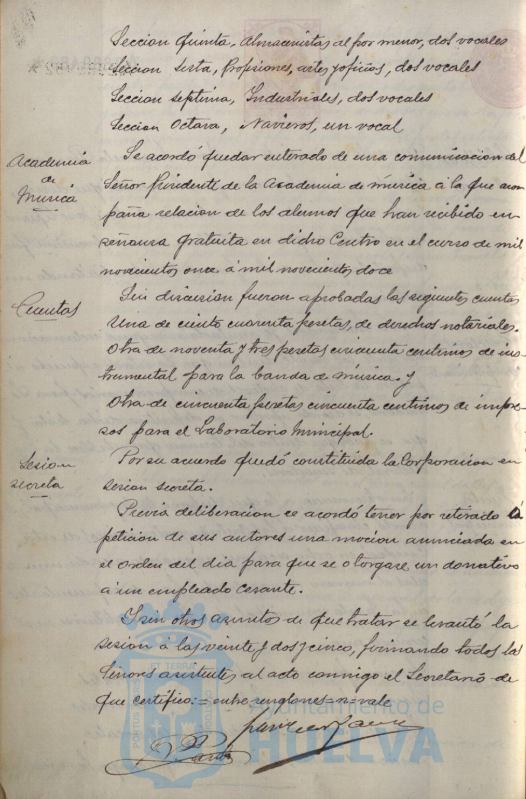 Seccion Quinta, Almacenistas al por menor, dos vocales
Seccion Sexta, Profesiones, artes y oficios, dos vocales
Seccion Septima, Industriales, dos vocales
Seccion Octava, Navieros, un vocal
Academia de Musica
Se acordó quedar enterado de una comunicacion del
Señor Presidente de la Academia de música á la que acom
paña relacion de los alumnos que han recibido en-
señanza gratuita en dicho Centro en el curso de mil
novecientos once á mil novecientos doce
Cuentas
Sin discusion fueron aprobadas las siguientes cuentas
Una de ciento cuarenta pesetas, de derechos notariales.
Otra de noventa y tres pesetas cincuenta centimos de ins-
trumental para la banda de música. y
Otra de cincuenta pesetas cincuenta centimos de impre-
sos para el Laboratorio Municipal.
Sesion secreta
Por su acuerdo quedó constituida la Corporacion en
sesion secreta.
Previa deliberacion se acordó tener por retirado á
peticion de sus autores una mocion anunciada en
el orden del dia para que se otorgase un donativo
á un empleado cesante.
Y sin otros asuntos de que tratar se levantó la
sesion á las veinte y dos y cinco, firmando todos los
Señores asistentes al acto conmigo el Secretario de
que certifico:= entre renglones=n=vale
Ayuntamiento de
HUELVA
PORTUS
ET TERRA